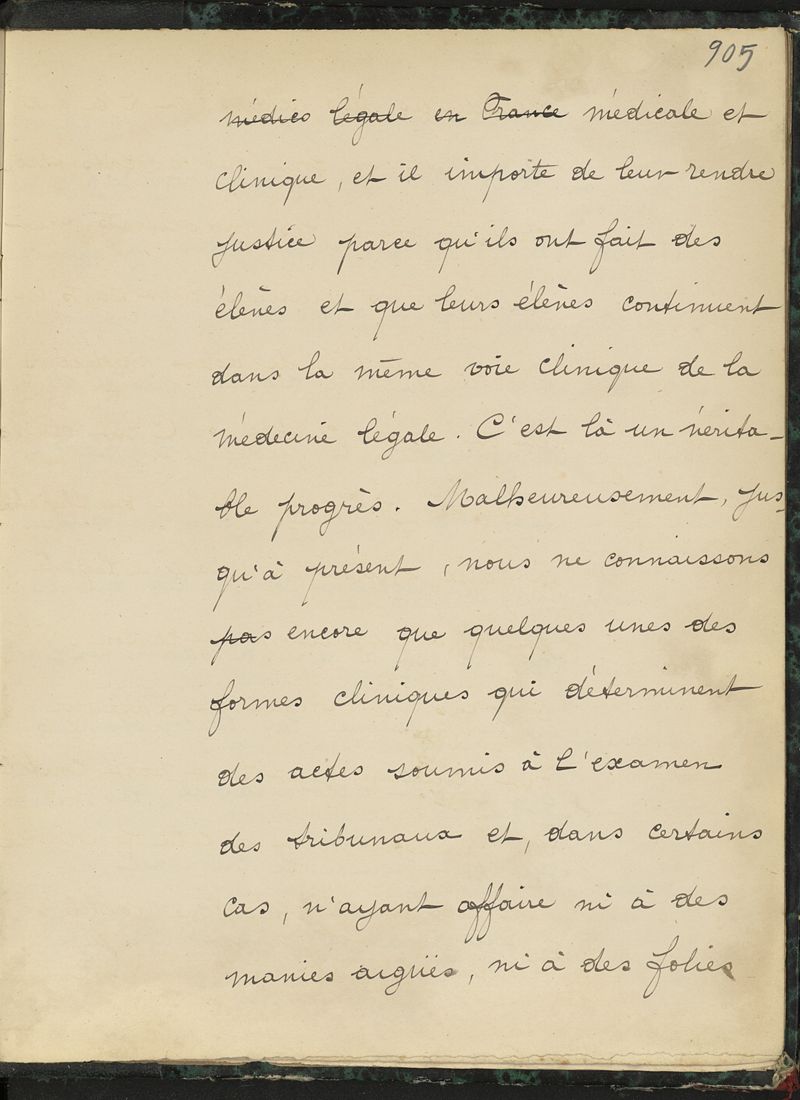 905
médico légale en France médicale et
clinique, et il importe de leur rendre
justice parce qu'ils ont fait des
élèves et que leurs élèves continuent
dans la même voie clinique de la
médecine légale. C'est là un vérita-
ble progrès. Malheureusement, jus-
qu'à présent, nous ne connaissons
pas encore que quelques unes des
formes cliniques qui déterminent
des actes soumis à l'examen
des tribunaux et, dans certains
cas, n'ayant affaire ni à des
manies aigües, ni à des folies